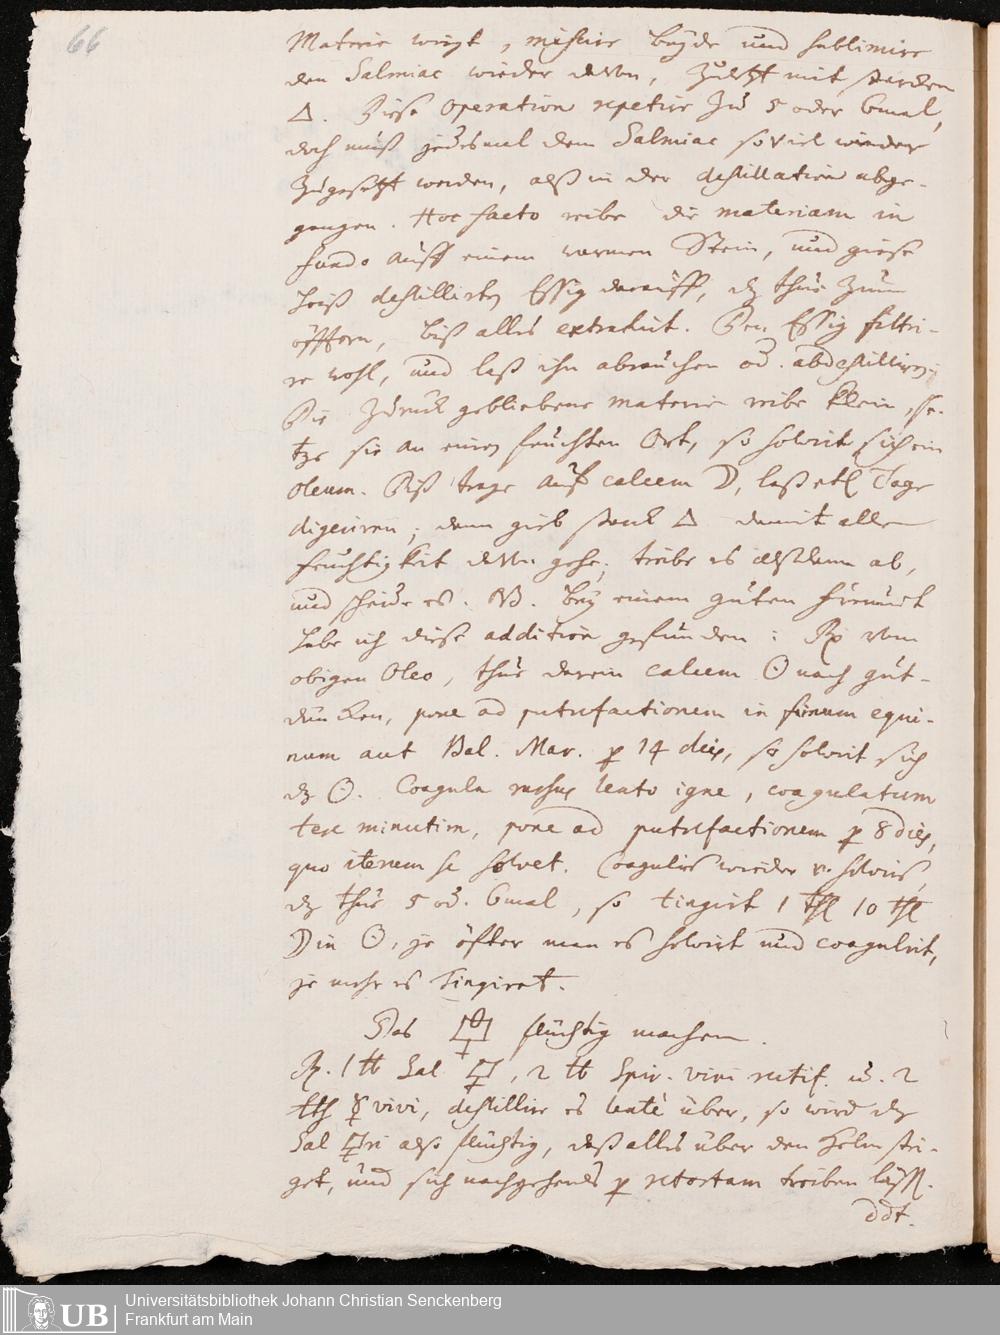 66
Materie wiegt, mischire beyde und sublimire
den Salmiac wieder davon, zuletzt mit starckem
🜂. Diese Operation repetire zu 5 oder 6mal,
doch muß jedesmal dem Salmiac so viel wieder
zugesetzt werden, alß in der destillation abge-
gangen. Hoc facto reibe die materiam in
fundo auff einem warmen Stein, und giese
heiß destillirten Essig darauff, dz thue zum
öfftern, biß alles extrahirt. Den Essig filtri-
re wohl, und laß ihn abrauchen od. abdestilliren.
Die zurück gebliebene materie reibe klein, se-
tze sie an einen feuchten Ort, so solvirt sich ein
Oleum. Diß trage auf calcem ☽, laß etl. Tage
digeriren; dann gieb starck 🜂 damit alle
feuchtigkeit davon gehe; treibe es alßdann ab,
und scheide es. NB. bey einem guten freundt
habe ich diese addition gefunden: Rx vom
obigen Oleo, thue darein calcem ☉ nach gut-
duncken, pone ad putrefactionem in fimum equi-
num aut Bal. Mar. p 14 dies, so solvirt sich
dz ☉. Coagula rursus lento igne, coagulatum
tere minutim, pone ad putrefactionem p 8 dies,
quo iterum se solvet. Coagulirs wieder v. solvirs,
dz thue 5 od. 6mal, so tingirt 1 thl 10 thl
☽ in ☉, je öfter man es solvirt und coagulirt,
je mehr es tingiret.
Das 🜿 flüchtig machen.
Rx. 1 ℔ Sal 🜿, 2 ℔ Spir. vini rectif. u. 2
℔ ☿ vivi, destillire es lente über, so wird dz
Sal 🜿ri also flüchtig, daß alles über den Helm stei-
get, und sich nachgehends p retortam treiben läßt.
ddt.
UB
Universitätsbibliothek Johann Christian Senckenberg
Frankfurt am Main